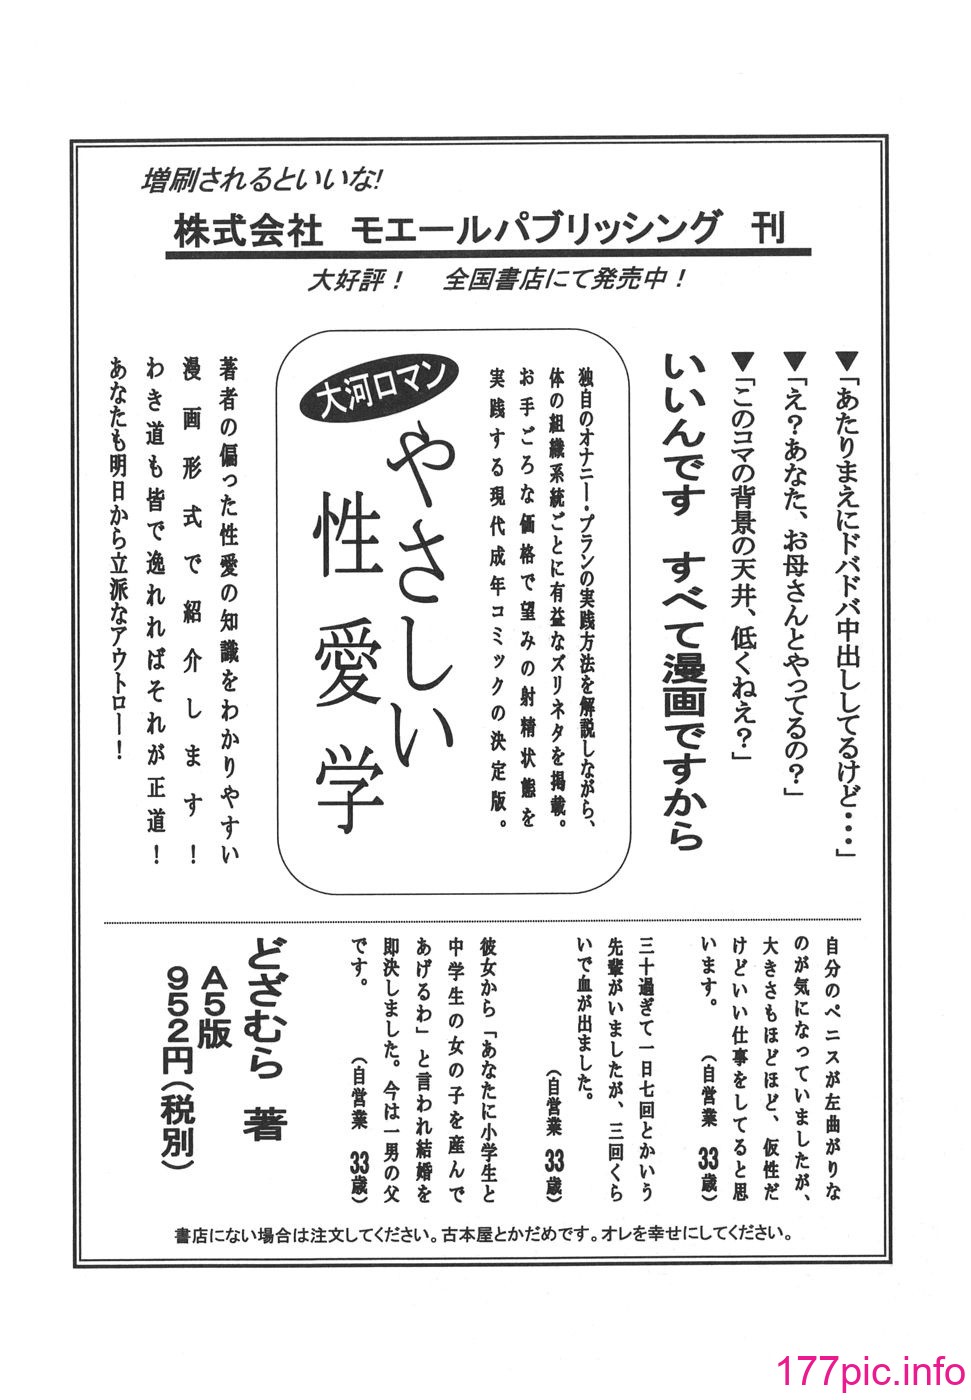 増刷されるといいな!
株式会社 モエールパブリッシング 刊
大好評! 全国書店にて発売中!
▼「あたりまえにドバドバ中出ししてるけど・・・」
▼「え?あなた、お母さんとやってるの?」
▼「このコマの背景の天井、低くねえ?」
いいんです すべて漫画ですから
独自のオナニー・プランの実践方法を解説しながら、
体の組織系統ごとに有益なズリネタを掲載。
お手ごろな価格で望みの射精状態を
実践する現代成年コミックの決定版。
大河ロマン
やさしい
性愛学
著者の偏った性愛の知識をわかりやすい
漫画形式で紹介します!
わき道も皆で逸れればそれが正道!
あなたも明日から立派なアウトロー!
自分のペニスが左曲がりな
のが気になっていましたが、
大きさもほどほど、仮性だ
けどいい仕事をしてると思
います。 (自営業 33歳)
三十過ぎて一日七回とかいう
先輩がいましたが、三回くら
いで血が出ました。
(自営業 33歳)
彼女から「あなたに小学生と
中学生の女の子を産んで
あげるわ」と言われ結婚を
即決しました。今は一男の父
です。 (自営業 33歳)
どざむら 著
A5版
952円(税別)
書店にない場合は注文してください。古本屋とかだめです。オレを幸せにしてください。
177pic.info